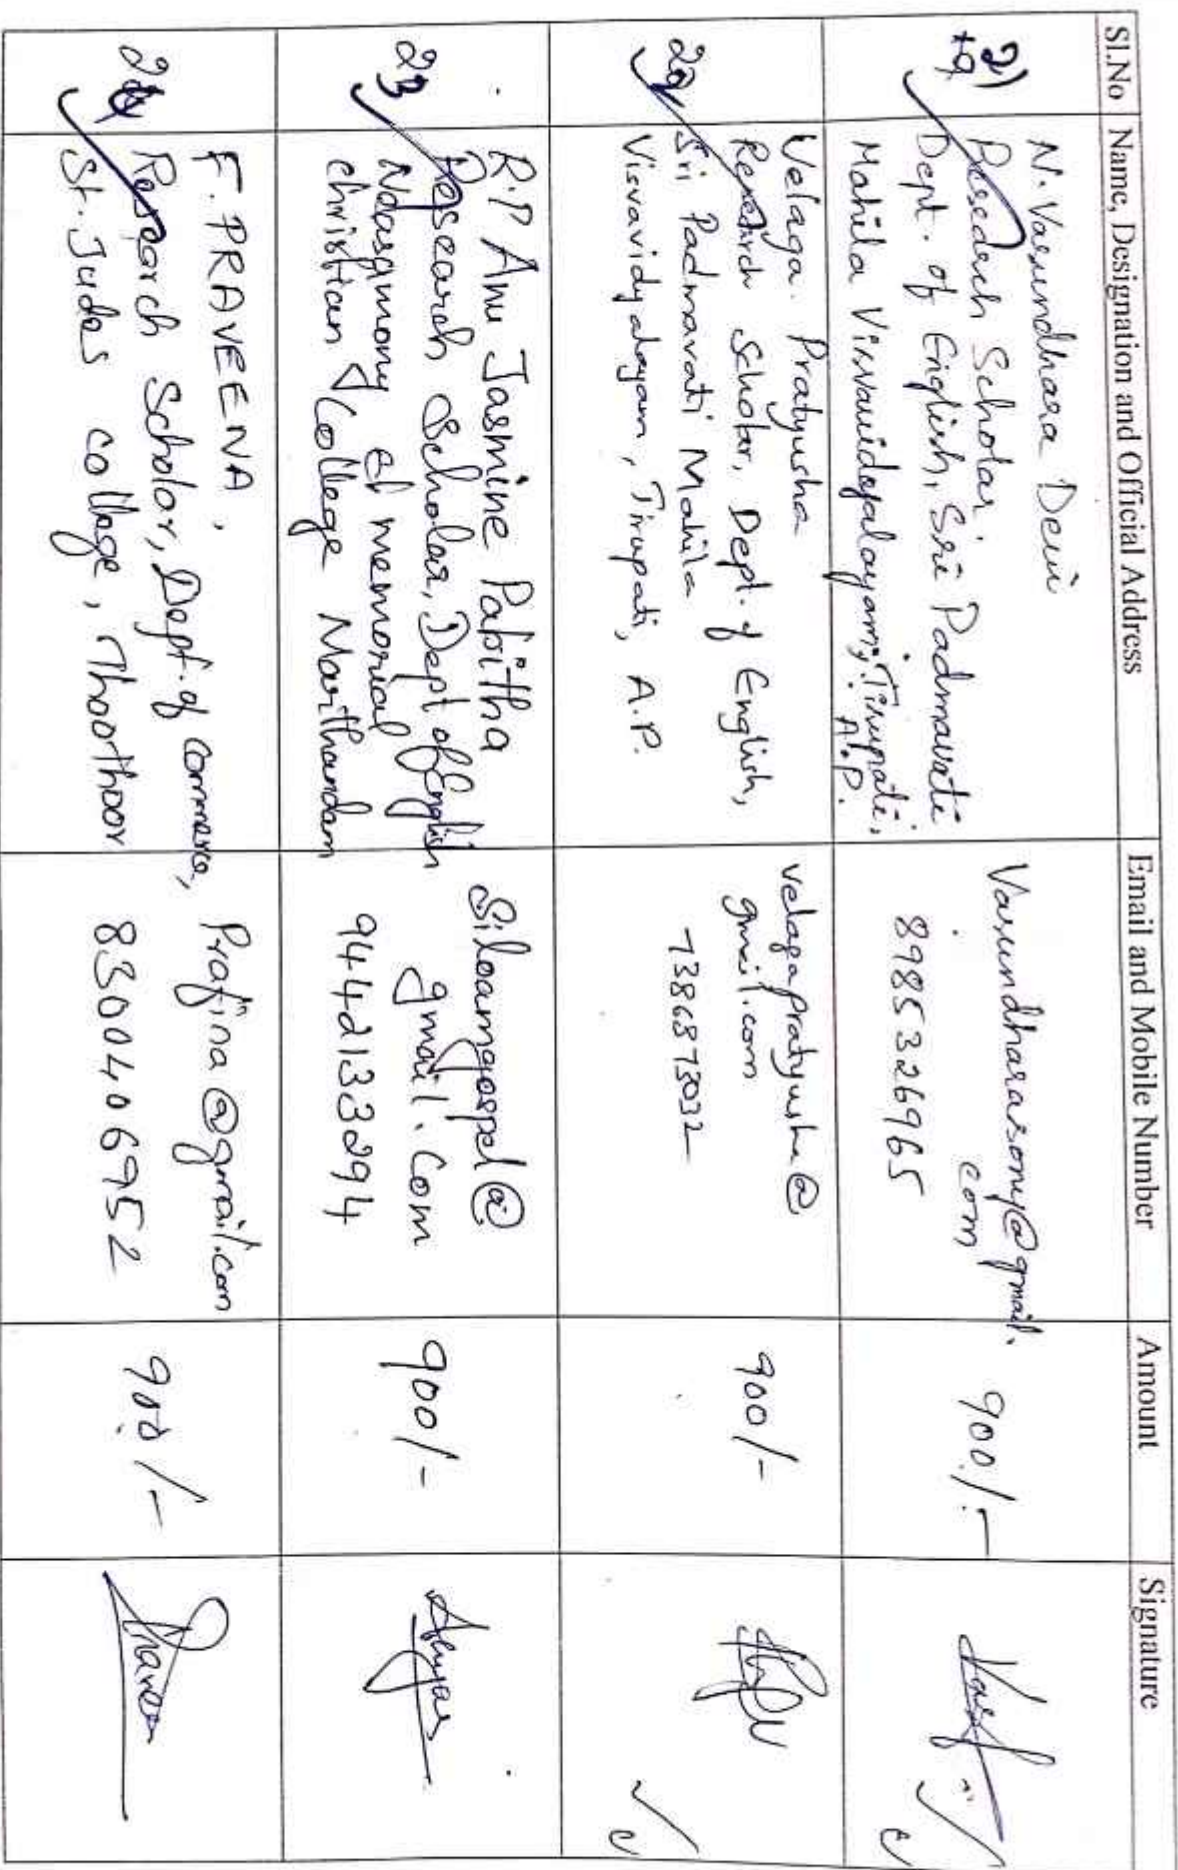 Sl.No Name, Designation and Official Address Email and Mobile Number Amount Signature
21)
N. Vasundhara Devi
Research Scholar
Dept. of English, Sri Padmavati
Mahila Visvavidyalayam, Tirupati,
A.P.
Vasundharasony@gmail.
com
8985326965
900/-
22
Velaga. Pratyusha
Research Scholar, Dept. of English,
Sri Padmavati Mahila
Visvavidyalayam, Tirupati, A.P.
velagapratyusha@
gmail.com
7386873032
900/-
23
R.P Anu Jasmine Pabitha
Research Scholar, Dept of English
Nesamony memorial
christian College Marthandam
Siloamgospel@
gmail.com
9442133294
900/-
24
F. PRAVEENA,
Research Scholor, Dept. of commerce,
St. Judes college, Thoothoor
Prafina@gmail.com
8300406952
900/-